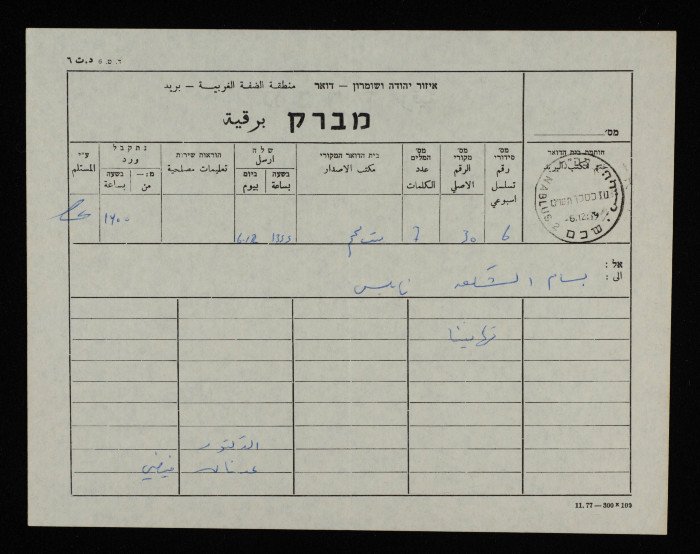 ד. ט. 6 د.ت ٦
איזור יהודה ושומרון – דואר منطقة الضفة الغربية – بريد
מברק برقية
מס'
חותמת בית הדואר
ختم مكتب البريد
NABLUS
שכם
6.12.79
מס' סידורי رقم تسلسل اسبوعي
מס' מקורי الرقم الاصلي
מס' המלים عدد الكلمات
בית הדואר המקורי مكتب الاصدار
שלח ارسل
בשעה بساعة
ביום بيوم
הוראות שירות تعليمات مصلحية
נתקבל ورد
מ:– من
בשעה بساعة
ע״י المستلم
6 30 7 بيت لحم 1353 6.12 1400
אל :
الى :
بسام الشكعه نابلس
تهانينا
الدكتور
عدنان
11.77 – 300 × 100